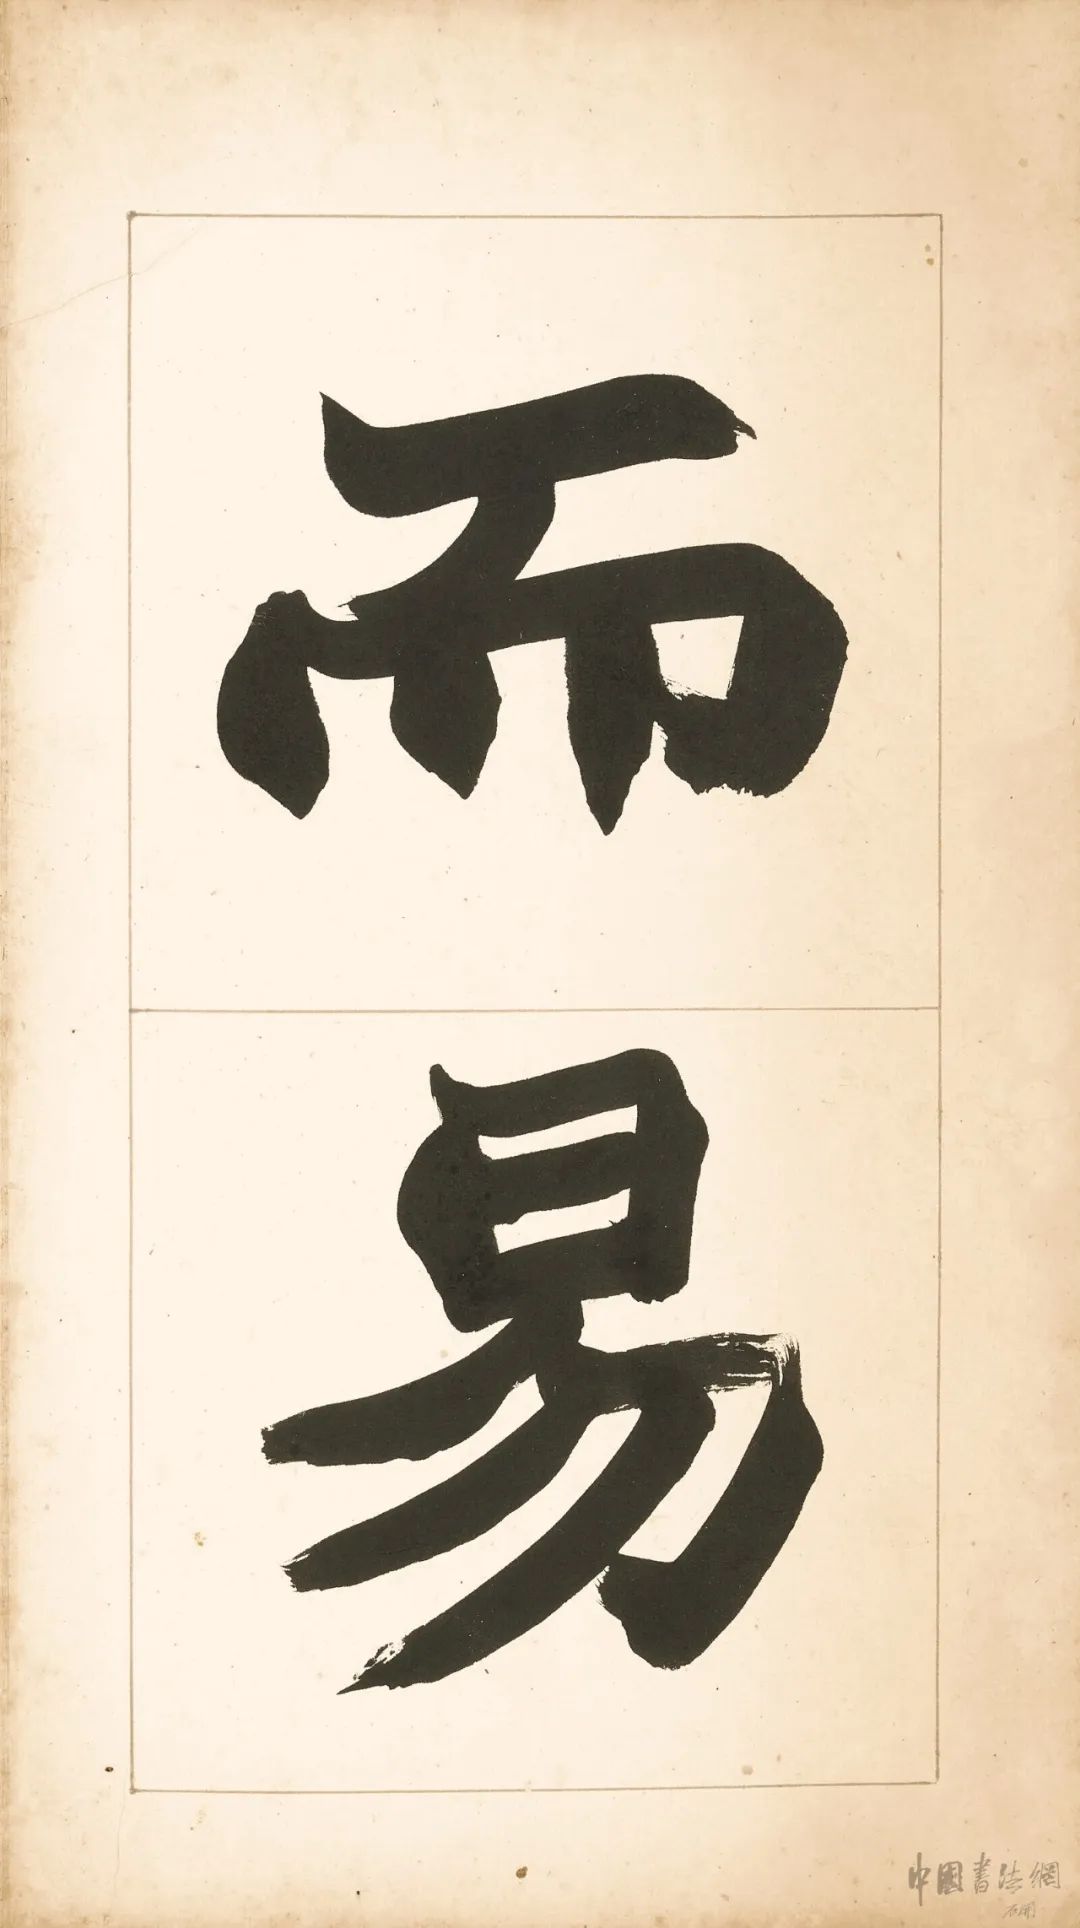 而
易
中國書法網